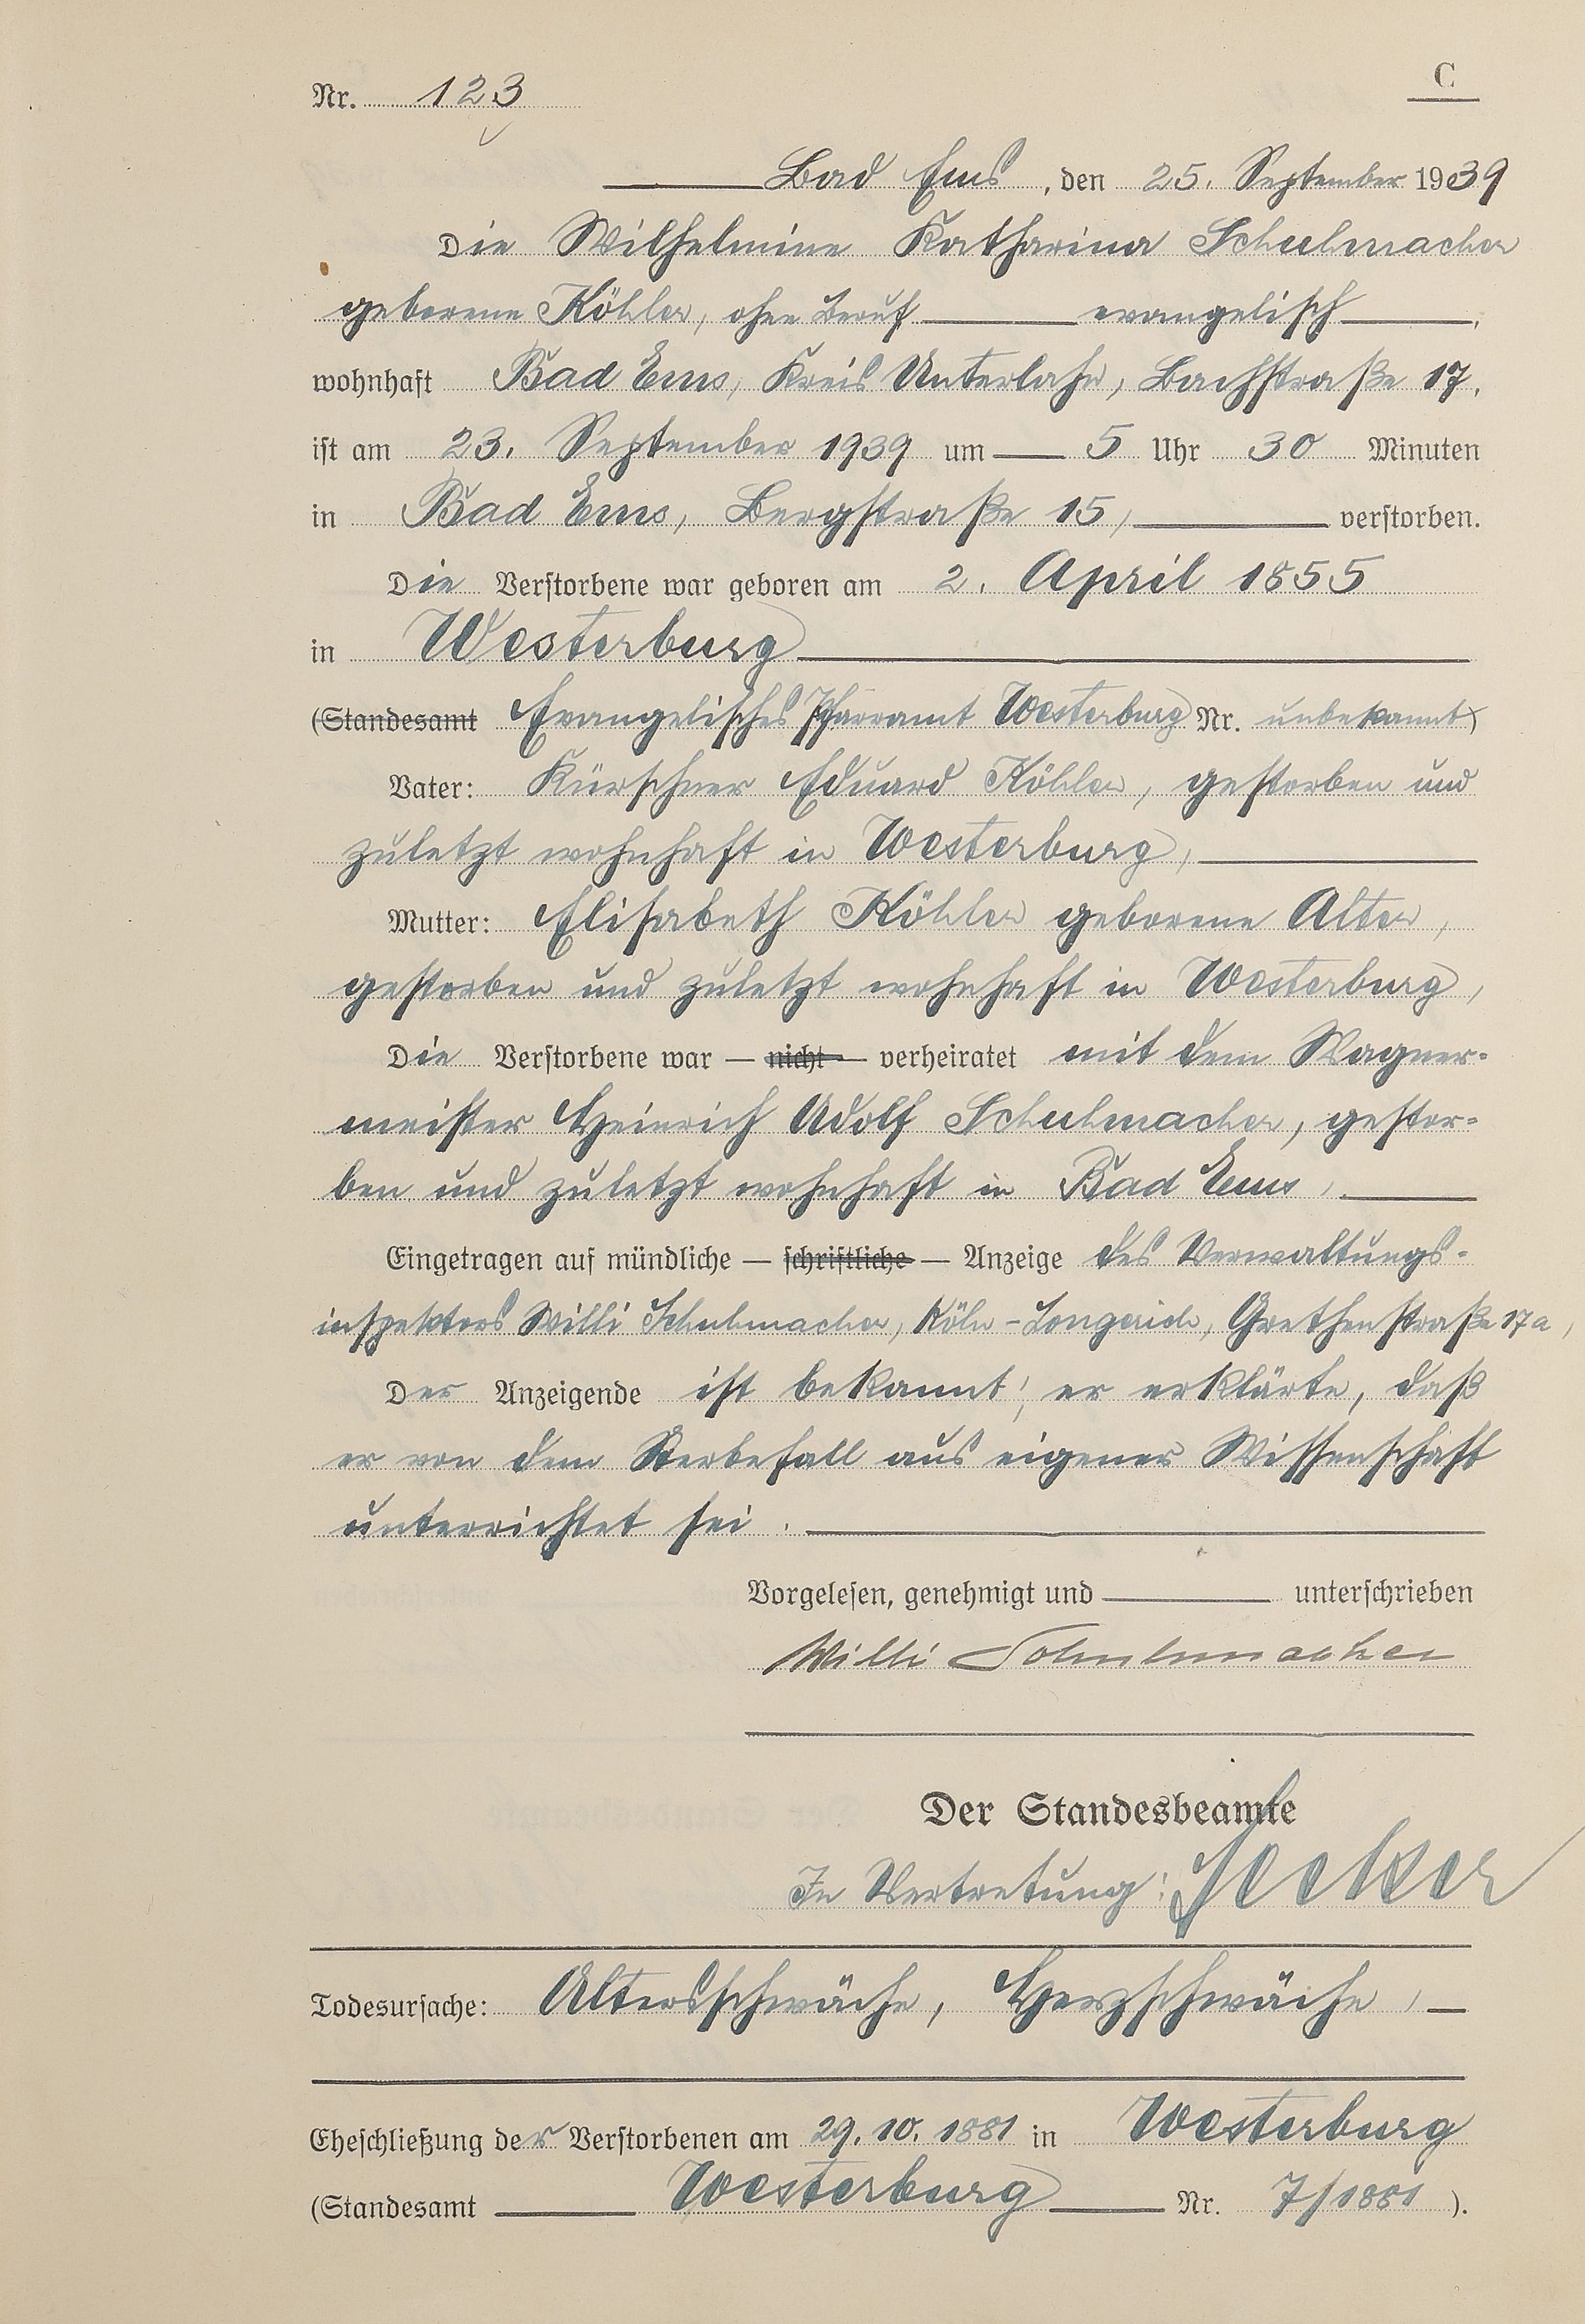 Nr. 123
C
Bad Ems, den 25. September 1939
Die Wilhelmine Katharina Schuhmacher
geborene Köhler, ohne Beruf evangelisch,
wohnhaft Bad Ems, Kreis Unterlahn, Bachstraße 17,
ist am 23. September 1939 um 5 Uhr 30 Minuten
in Bad Ems, Bergstraße 15, verstorben.
Die Verstorbene war geboren am 2. April 1855
in Westerburg
(Standesamt Evangelisches Pfarramt Westerburg Nr. unbekannt)
Vater: Kürschner Eduard Köhler, gestorben und
zuletzt wohnhaft in Westerburg,
Mutter: Elisabeth Köhler geborene Alter,
gestorben und zuletzt wohnhaft in Westerburg,
Die Verstorbene war — nicht — verheiratet mit dem Wagner-
meister Heinrich Adolf Schuhmacher, gestor-
ben und zuletzt wohnhaft in Bad Ems,
Eingetragen auf mündliche — schriftliche — Anzeige des Verwaltungs-
inspektors Willi Schuhmacher, Köln-Longerich, Grethenstraße 17a,
Der Anzeigende ist bekannt; er erklärte, daß
er von dem Sterbefall aus eigener Wissenschaft
unterrichtet sei.
Vorgelesen, genehmigt und unterschrieben
Willi Schuhmacher
Der Standesbeamte
In Vertretung:
Todesursache: Altersschwäche, Herzschwäche,
Eheschließung der Verstorbenen am 29. 10. 1881 in Westerburg
(Standesamt Westerburg Nr. 7/1881).